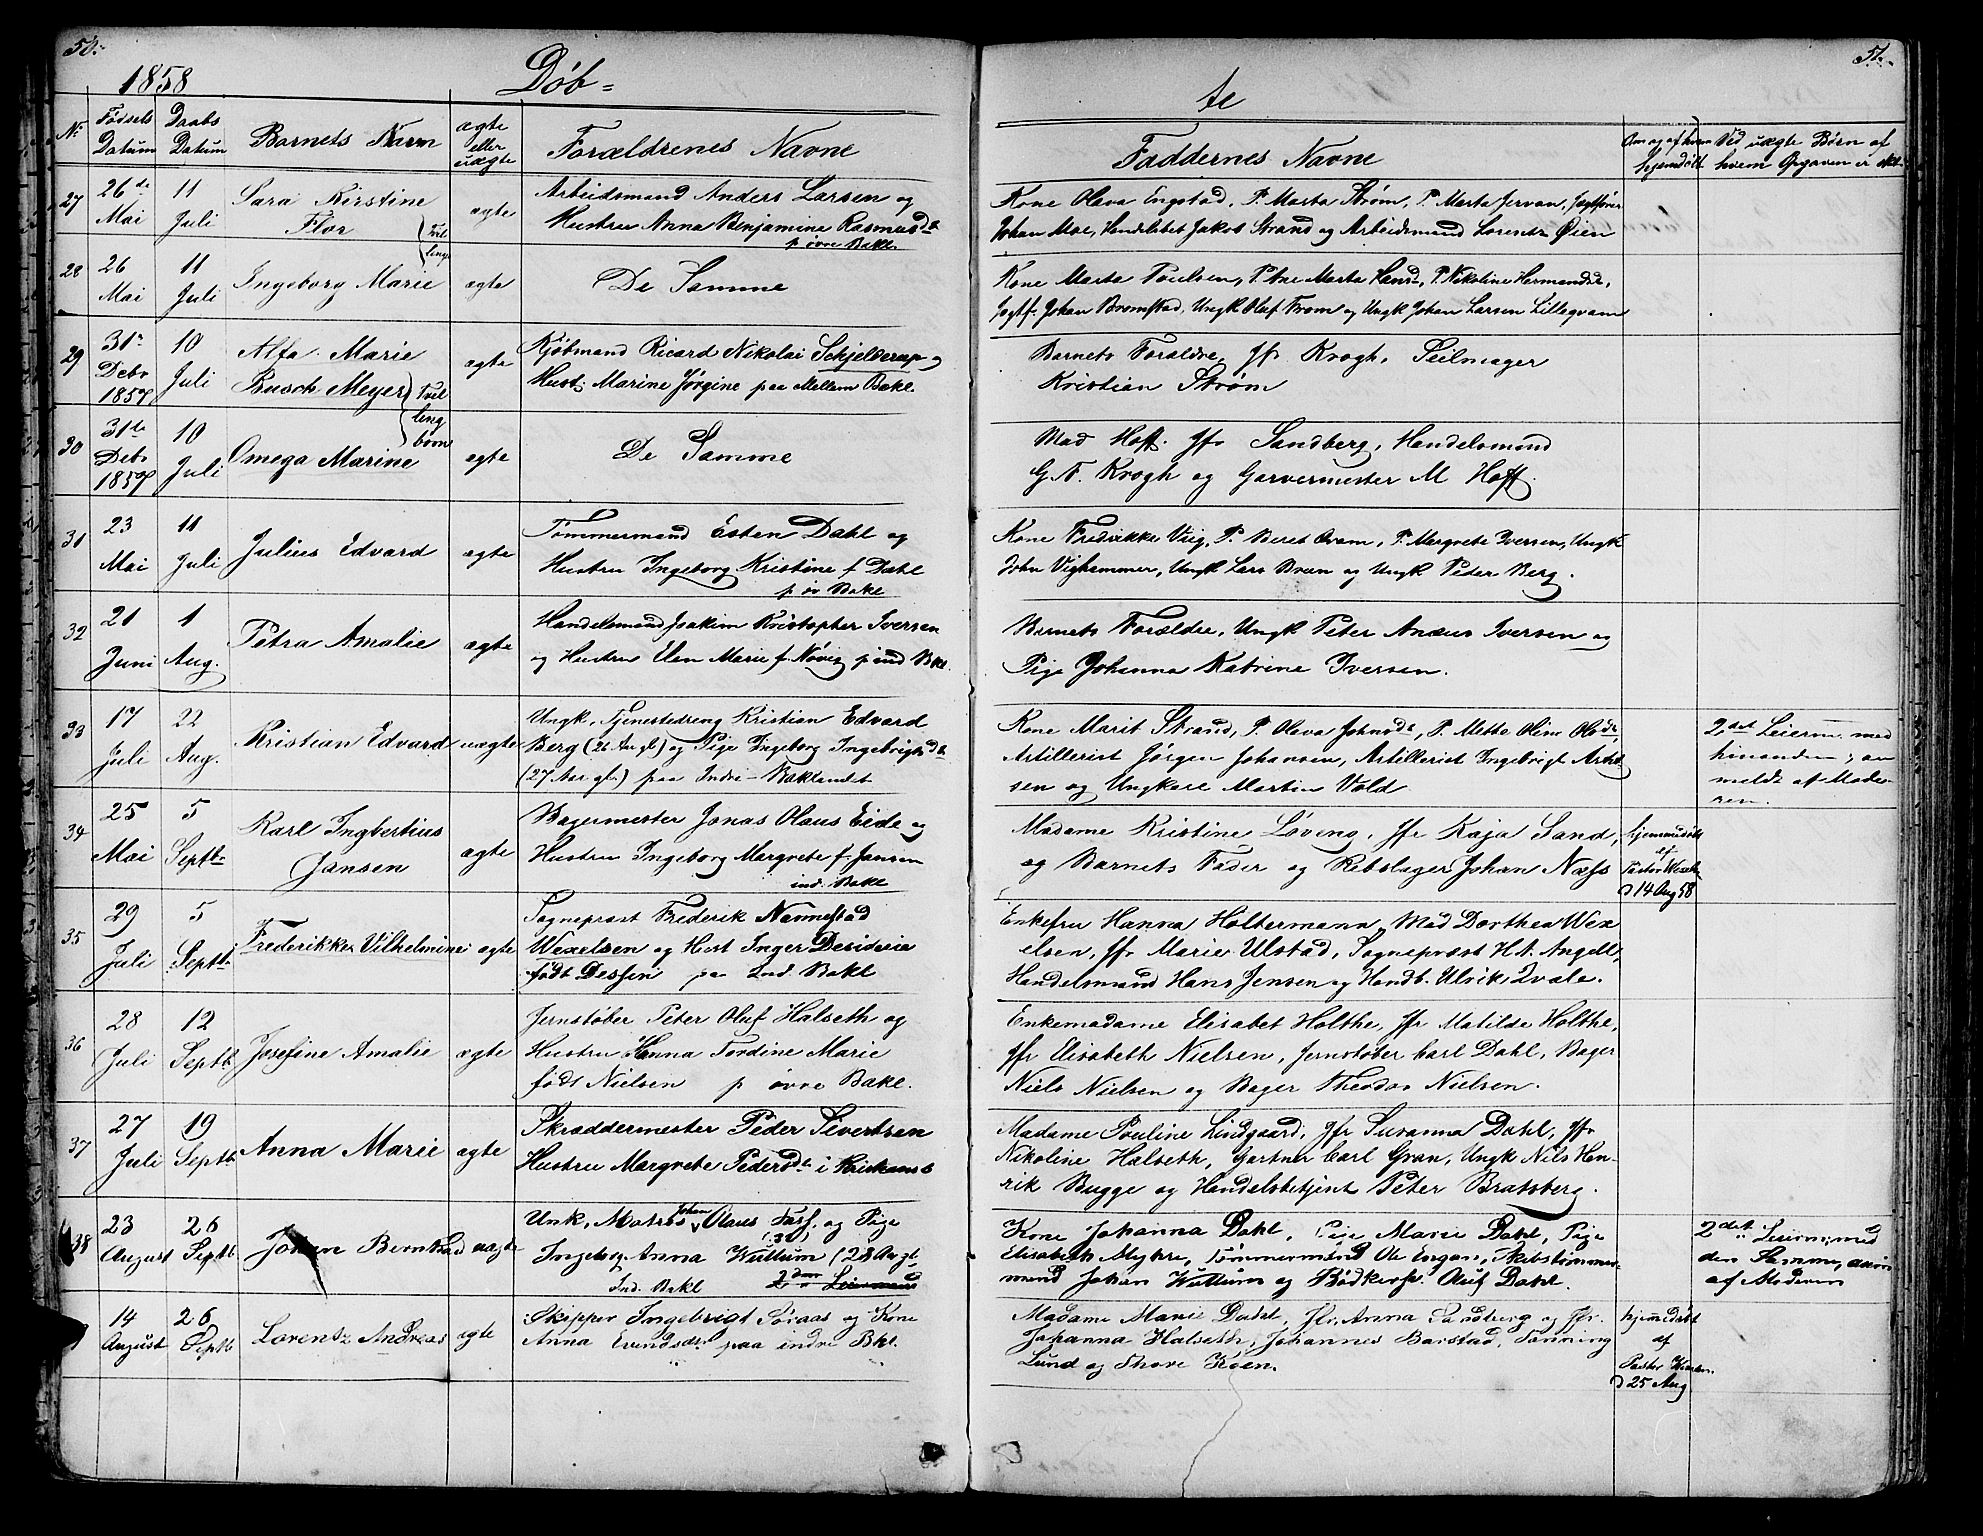 50.
1858
Døb=
No
Fødsels Datum
Daabs Datum
Barnets Navn
ægte eller uægte
Forældrenes Navne
27
26de Mai
11 Juli
Sara Kirstine
Flor
Tvil
ling
ægte
Arbeidsmand Anders Larsen og
Hustru Anna Benjamine Rasmusdt
p øvre Bakl.
28
26 Mai
11 Juli
Ingeborg Marie
ægte
De Samme
29
31te Debr 1857
10 Juli
Alfa Marie
Busch Meyer
Tvil
ling
børn
ægte
Kjøbmand Ricard Nikolai Schjelderup og
Hust. Marine Jørgine paa Mellem Bakl.
30
31te Debr 1857
10 Juli
Omega Marine
ægte
De Samme
31
23 Mai
11 Juli
Julius Edvard
ægte
Tømmermand Esten Dahl og
Hustru Ingeborg Kristine f Dahl
p øv Bakl
32
21 Juni
1 Aug.
Petra Amalie
ægte
Handelsmand Joakim Kristopher Iversen
og Hustru Elen Marie f. Nøvig p ind Bakl.
33
17 Juli
22 Aug.
Kristian Edvard
uægte
Ungk. Tjenestedreng Kristian Edvard
Berg (26 Aar gl) og Pige Ingeborg Ingebrigtsdt
(27 Aar gl.) paa Indre Baklandet
34
25 Mai
5 Septbr
Karl Ingbertius
Jansen
ægte
Bagermester Jonas Olaus Eide og
Hustru Ingeborg Margrete f. Jansen
ind. Bakl
35
29 Juli
5 Septbr
Frederikke Vilhelmine
ægte
Sogneprest Frederik Nannestad
Wexelsen og Hust Inger Desideria
født Dessen paa Ind. Bakl
36
28 Juli
12 Septb
Josefine Amalie
ægte
Jernstøber Peter Oluf Halseth og
Hustru Hanna Tordine Marie
født Nielsen p øvre Bakl.
37
27 Juli
19 Septb
Anna Marie
ægte
Skræddermester Peder Sivertsen
Hustru Margrete Pedersdt i
38
23 August
26 Septb
Johan Berntsad
uægte
Unk. Johan Olaus og Pige
Ingeborg Anna Wullum (23 Aar gl
Ind. Bakl
14 August
26 Septb
Lorentz Andreas
ægte
Skipper Ingebrigt Søraas og Kone
Anna Evendsdt. paa indre Bkl.
51.
te
Faddernes Navne
Om og af hvem hjemdøbt
Ved uægte Børn af
hvem Opgaven er
Kone Olava Engstad, P. Marta Strøm, P. Marta Jervan, Jagtfører
Johan Moe, Handelsbet Jakob Strand og Arbeidsmand Lorentz Øien
Kone Marta Poulsen, P. Ane Marta Hansd, P. Nikoline Hermandsd,
Jagtf. Johan Bromstad, Ungk Oluf From og Ungk Johan Larsen Lillegvam
Barnets Forældre, Jfr Krogh, Seilmager
Kristian Strøm
Mad Hoff. Jfr Sandberg, Handelsmand
G. F. Krogh og Garvermester M Hoff.
Kone Fredrikke Viig, P. Beret Qvam, P. Margrete Iversen, Ungk
John Vighammer, Ungk Lars Bræn og Ungk Peter Berg.
Barnets Forældre, Ungk Peter Anæus Iversen og
Pige Johanna Katrine Iversen.
Kone Marit Strand, P. Olava Johnsdt, P. Mette Oline Olsdt
Artillerist Jørgen Johansen, Artillerist Ingebrigt Arnt
sen og Ungkarl Martin Vold.
2det Leierm. med
hinanden; an
meldt af Mode-
ren.
Madame Kristine Løveng, Jfr Kaja Sand,
og Barnets Fader og Rebslager Johan Næss
hjemmedøbt
af
Pastor Wexels
d 14 Aug 58
Enkefru Hanna Holtermann, Mad Dorthea Wex
elsen, Jfr Marie Ulstad, Sogneprest H. A. Angell,
Handelsmand Hans Jensen og Handb. Ulrik Qvale.
Enkemadame Elisabet Holthe, Jfr Matilde Holthe,
Jfr Elisabeth Nielsen, Jernstøber Carl Dahl, Bager
Niels Nielsen og Bager Theodor Nielsen.
Madame Pouline Lindgaard, Jfr Susanna Dahl, Jfr
Nikoline Halseth, Gartner Carl Gran, Ungk Nils Hen-
rik Bugge og Handelsbetjent Peter Bratsberg.
Kone Johanna Dahl, Pige Marie Dahl, Pige
Elisabeth Myhre, Tømmermand Ole Engan, Skibstømmer
mand Johan Wullum og Bødkersv. Oluf Dahl.
2det Leierm. med
den Samme, anm
af Moderen
Madame Marie Dadel, Jfr. Anna Sandberg og Jfr.
Johanna Halseth, Johannes Barstad, Tønning
Lund og Thore Køen.
hjemmedøbt
af
Pastor
d 25 Aug